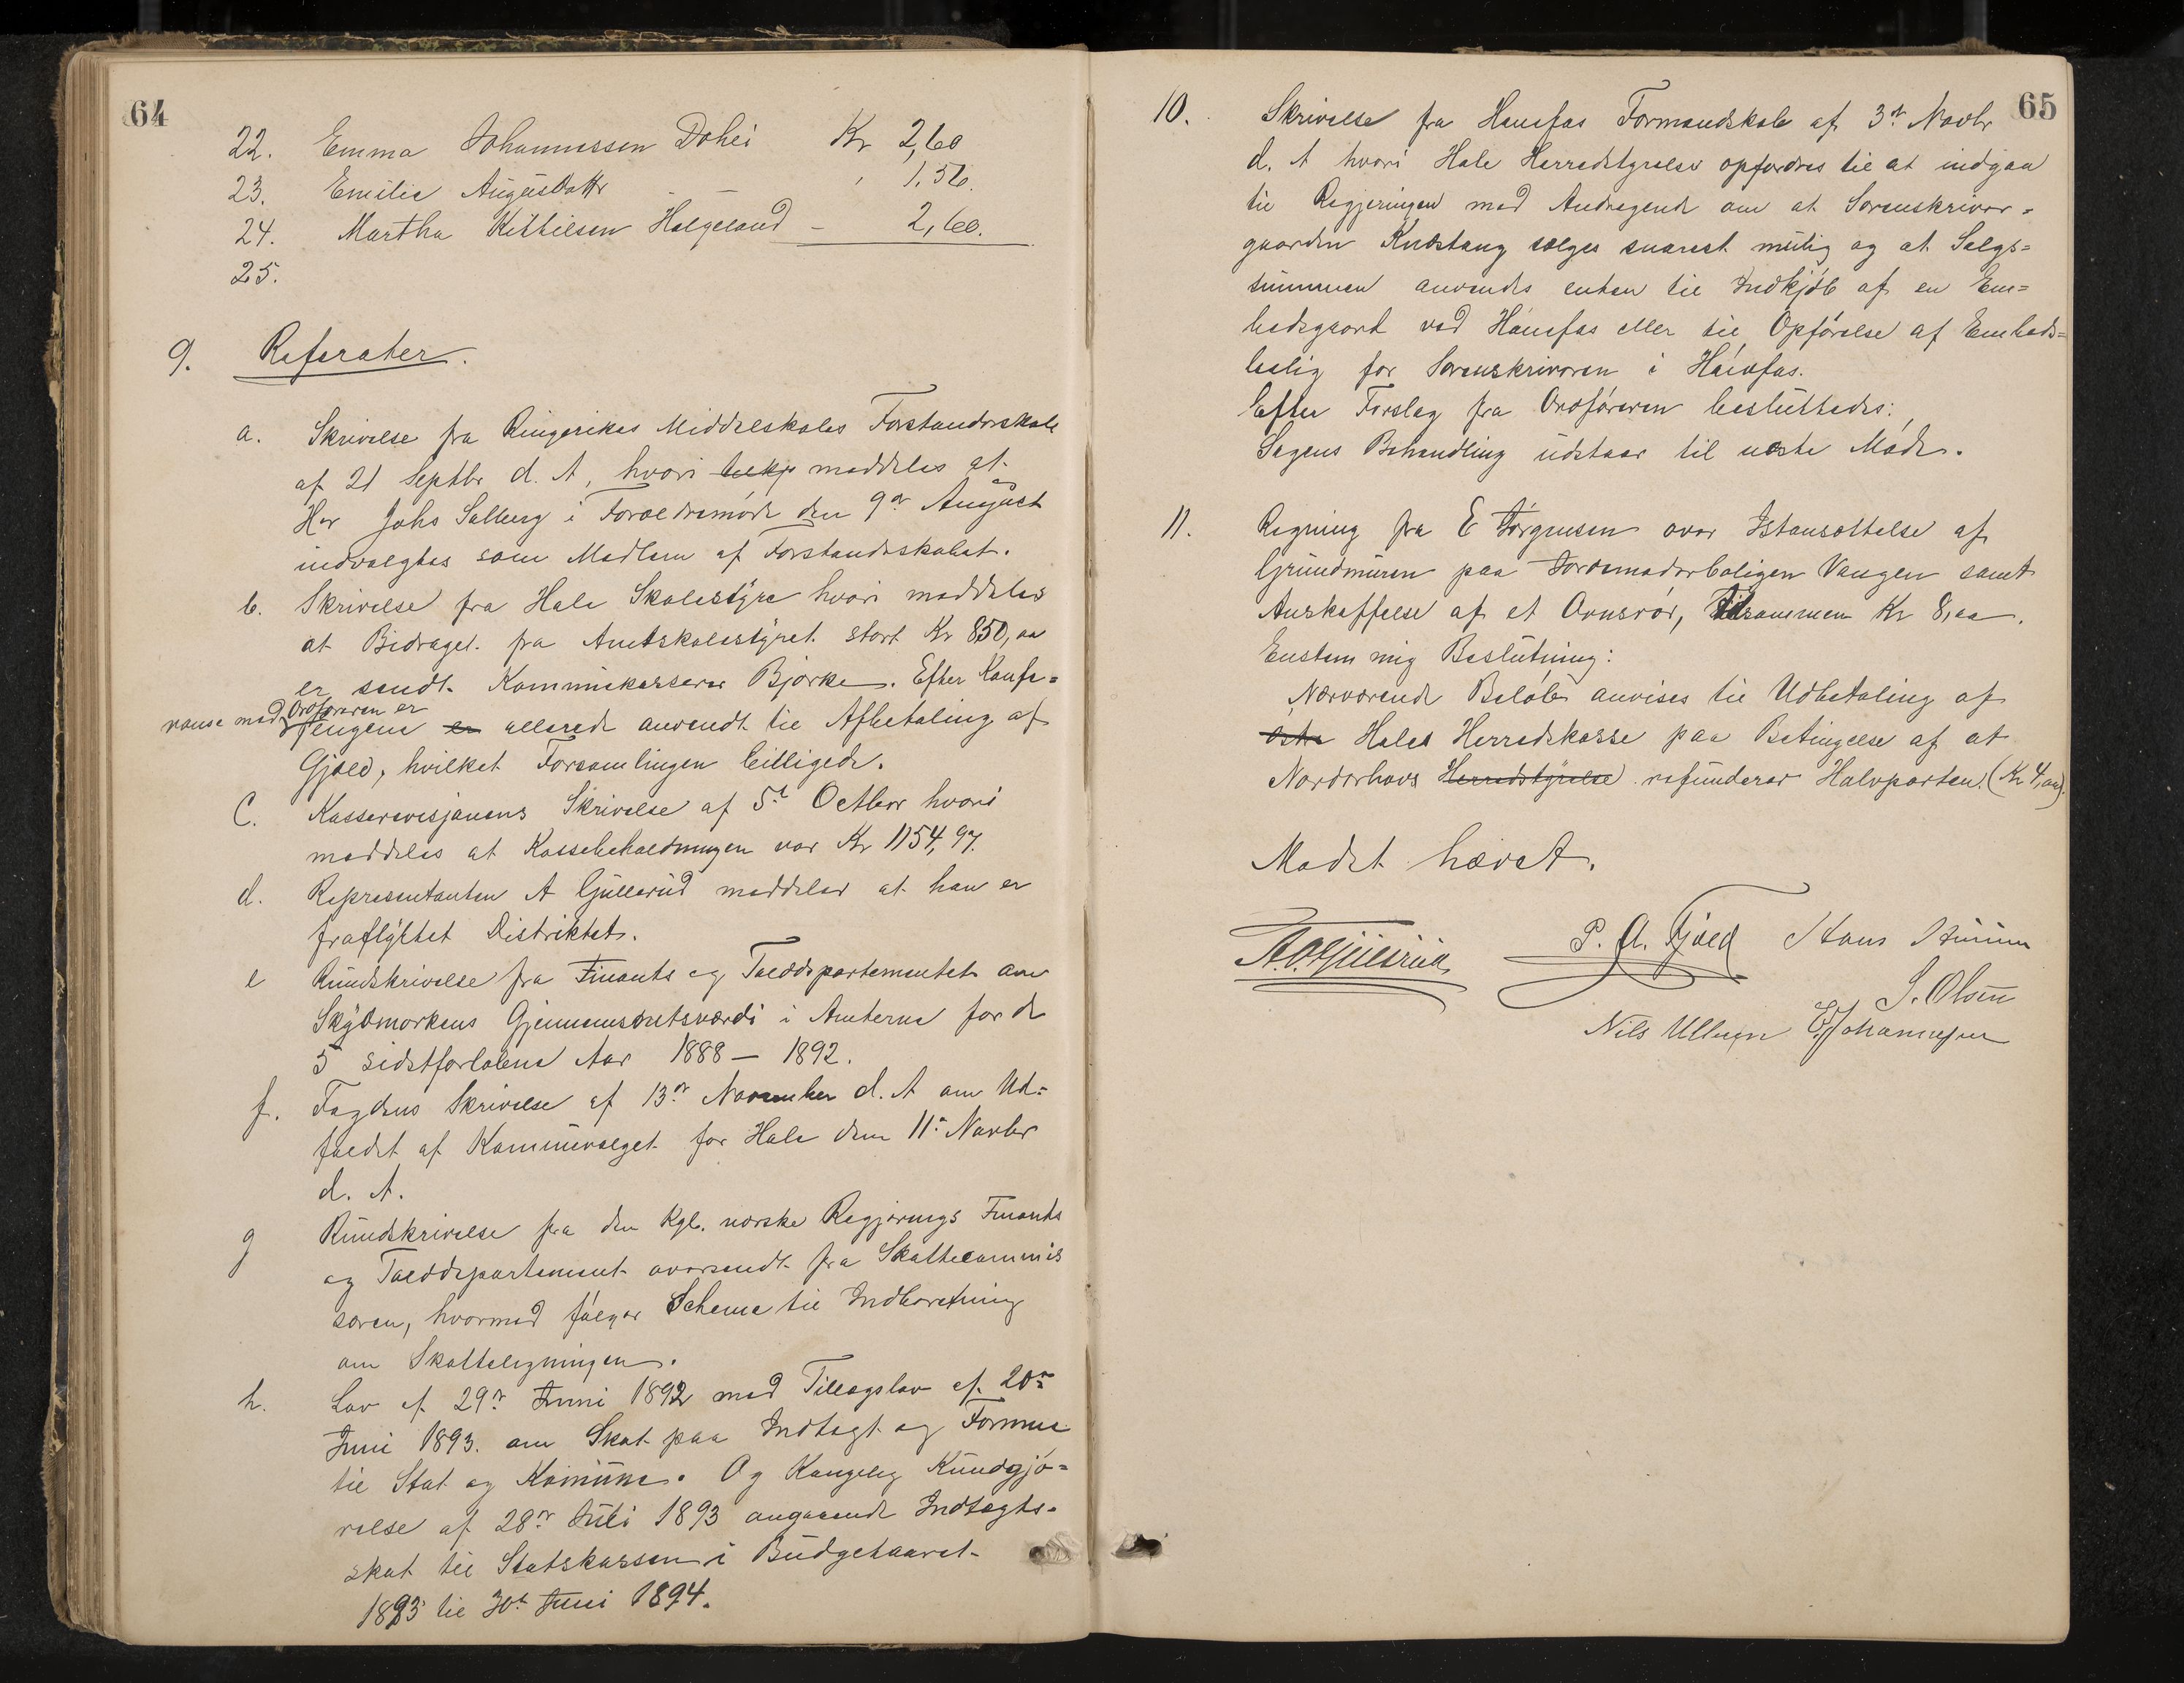 64
22. Emma Johannessen Dohei Kr 2,60
23. Emilie Augustdattr , 1,56.
24. Martha Kittilsen Halgeland - 2,60.
25.
9. Referater.
a. Skrivelse fra Ringerikes Middelskoles Forstanderskab
af 21 Septbr d. A, hvori meddeles at
Hr Johs Solberg i Forældremøde den 9de August
indvalgtes som Medlem af Forstanderskabet.
b. Skrivelse fra Hole Skolestyre hvori meddeles
at Bidraget fra Amtskolestyret stort Kr 850,00
er sendt Kommunekasserer Bjørke. Efter Konfe=
ranse med Ordføreren er
Pengene er allerede anvendt til Afbetaling af
Gjæld, hvilket Forsamlingen billigede.
C. Kasserevisjonens Skrivelse af 5te Octber hvori
meddeles at Kassebeholdningen var Kr 1154,97.
d. Representanten A Gullerud meddeler at han er
fraflyttet Distriktet.
e Rundskrivelse fra Finants og Tolddepartementet om
Skydmarkens Gjennemsnitsværdi i Amterne for de
5 sidstforløbne Aar 1888 — 1892.
f. Fogdens Skrivelse af 13de November d. A om Ud=
faldet af Kommunevalget for Hole den 11te Novbr
d. A.
g Rundskrivelse fra den Kgl. norske Regjerings Finants
og Tolddepartement oversendt fra Skattecommis
særen, hvormed følger Schema til Indberetning
om Skatteligningen.
h. Lov af 29de Juni 1892 med Tillægslov af 20de
Juni 1893. om Skat paa Indtægt og Formue
til Stat og Kommune. Og Kongelig Kundgjø=
relse af 28de Juli 1893 angaaende Indtægts=
skat til Statskassen i Budgetaaret
1893 til 30te Juni 1894.
65
10. Skrivelse fra Hønefos Formandskab af 3de Novbr
d. A hvori Hole Herredstyrelse opfordres til at indgaa
til Regjeringen med Andragende om at Sorenskriver=
gaarden Knestang sælges snarest mulig og at Salgs=
summen anvendes enten til Indkjøb af en Em=
bedsgaard ved Hønefos eller til Opførelse af Embeds=
bolig for Sorenskriveren i Hønefos.
Efter Forslag fra Ordføreren besluttedes:
Sagens Behandling udstaar til næste Møde.
11. Regning fra E Jørgensen over Istansættelse af
Grundmuren paa Jordemoderboligen Vangen samt
Anskaffelse af et Ovnsrør, Tilsammen Kr 8,00.
Enstemmig Beslutning:
Nærværende Beløb anvises til Udbetaling af
Holes Herredskasse paa Betingelse af at
Norderhovs Herredstyrelse refunderer Halvparten. (Kr 4,00).
Mødet hævet.
P. A. Fjeld Hans
S. Olsen
Nils Ullern E Johannesen